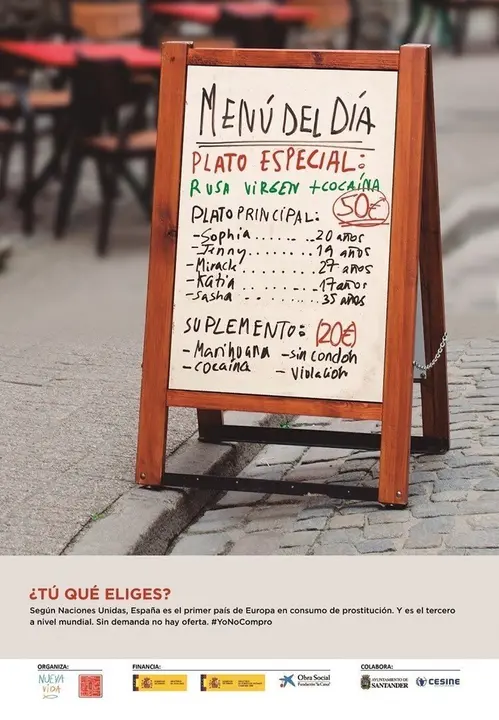 MENÚ DEL DÍA
PLATO ESPECIAL:
RUSA VIRGEN + COCAÍNA
50€
PLATO PRINCIPAL:
-Sophia........20 años
-Jenny........19 años
-Mirack........27 años
-Katia........17 años
-Sasha........35 años
SUPLEMENTO: (20€)
-Marihuana -sin condon
-cocaína -Violación
¿TÚ QUÉ ELIGES?
Según Naciones Unidas, España es el primer país de Europa en consumo de prostitución. Y es el tercero
a nivel mundial. Sin demanda no hay oferta. #YoNoCompro
ORGANIZA: FINANCIA: COLABORA:
NUEVA VIDA
Obra Social
Fundación "la Caixa"
AYUNTAMIENTO DE
SANTANDER
CESINE